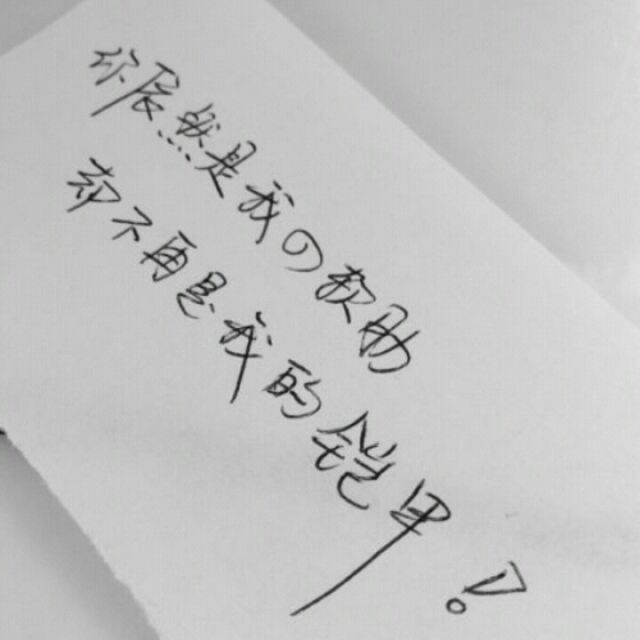 你然是我の软肋
却不再是我的铠甲!